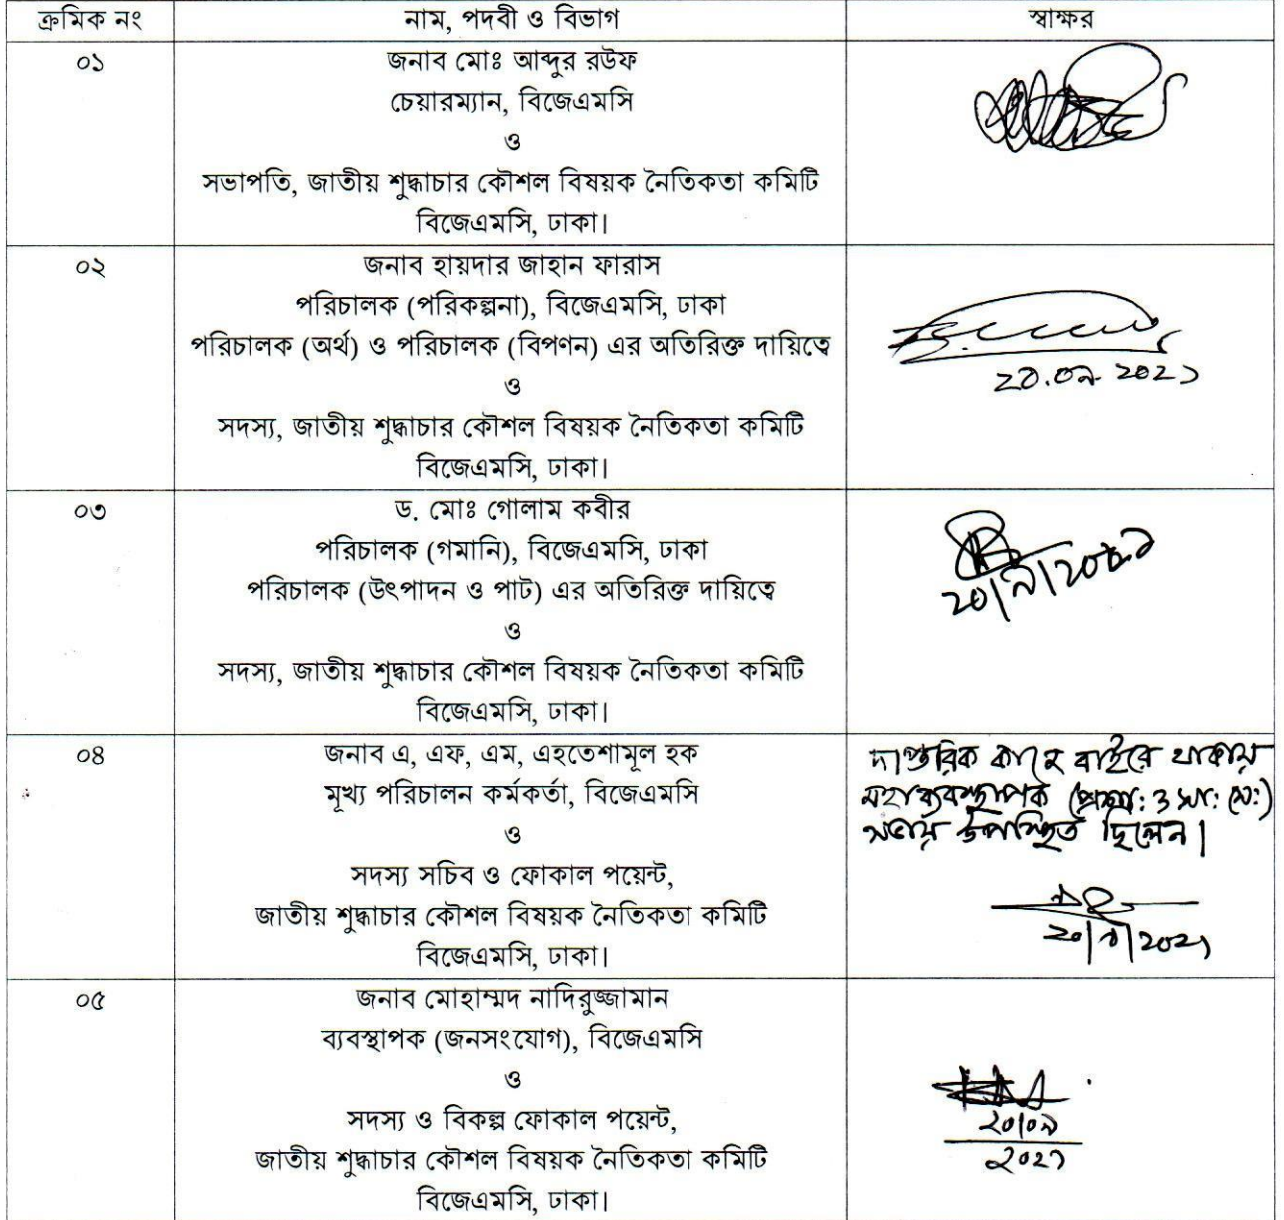 ক্রমিক নং	নাম, পদবী ও বিভাগ	স্বাক্ষর
০১	জনাব মোঃ আব্দুর রউফ
চেয়ারম্যান, বিজেএমসি
ও
সভাপতি, জাতীয় শুদ্ধাচার কৌশল বিষয়ক নৈতিকতা কমিটি
বিজেএমসি, ঢাকা।
০২	জনাব হায়দার জাহান ফারাস
পরিচালক (পরিকল্পনা), বিজেএমসি, ঢাকা
পরিচালক (অর্থ) ও পরিচালক (বিপণন) এর অতিরিক্ত দায়িত্বে
ও
সদস্য, জাতীয় শুদ্ধাচার কৌশল বিষয়ক নৈতিকতা কমিটি
বিজেএমসি, ঢাকা।
২০.০৯.২০২১
০৩	ড. মোঃ গোলাম কবীর
পরিচালক (গমানি), বিজেএমসি, ঢাকা
পরিচালক (উৎপাদন ও পাট) এর অতিরিক্ত দায়িত্বে
ও
সদস্য, জাতীয় শুদ্ধাচার কৌশল বিষয়ক নৈতিকতা কমিটি
বিজেএমসি, ঢাকা।
২০/৯/২০২১
০৪	জনাব এ, এফ, এম, এহতেশামূল হক
মূখ্য পরিচালন কর্মকর্তা, বিজেএমসি
ও
সদস্য সচিব ও ফোকাল পয়েন্ট,
জাতীয় শুদ্ধাচার কৌশল বিষয়ক নৈতিকতা কমিটি
বিজেএমসি, ঢাকা।
দাপ্তরিক কাজে বাইরে থাকায়
মহাব্যবস্থাপক (প্রশা: ও সা: সে:)
সভায় উপস্থিত ছিলেন।
২০/৯/২০২১
০৫	জনাব মোহাম্মদ নাদিরুজ্জামান
ব্যবস্থাপক (জনসংযোগ), বিজেএমসি
ও
সদস্য ও বিকল্প ফোকাল পয়েন্ট,
জাতীয় শুদ্ধাচার কৌশল বিষয়ক নৈতিকতা কমিটি
বিজেএমসি, ঢাকা।
২০/০৯
২০২১